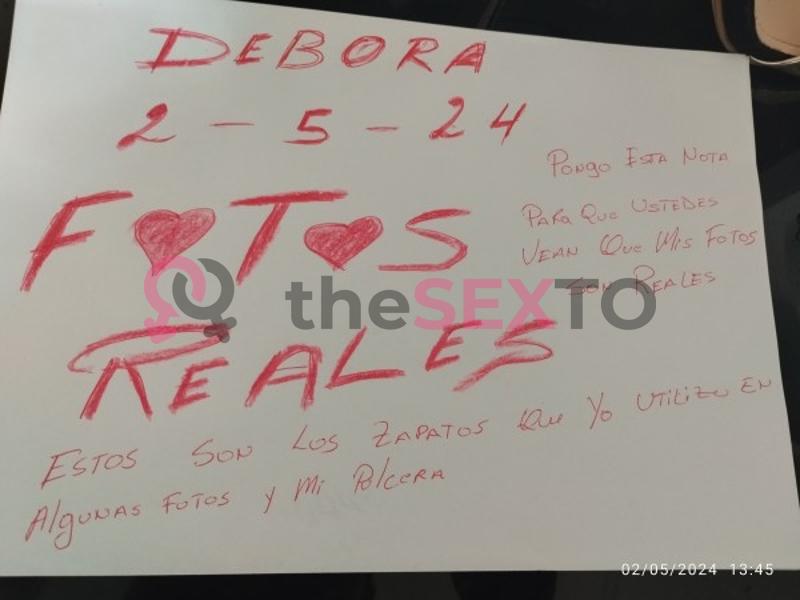 DEBORA
2 - 5 - 24
PONGO ESTA NOTA
PARA QUE USTEDES
VEAN QUE MIS FOTOS
SON REALES
F♥T♥S
theSEXTO
REALES
ESTOS SON LOS ZAPATOS QUE YO UTILIZO EN
AlguNAS FOTOS Y Mi PulCERA
02/05/2024 13:45